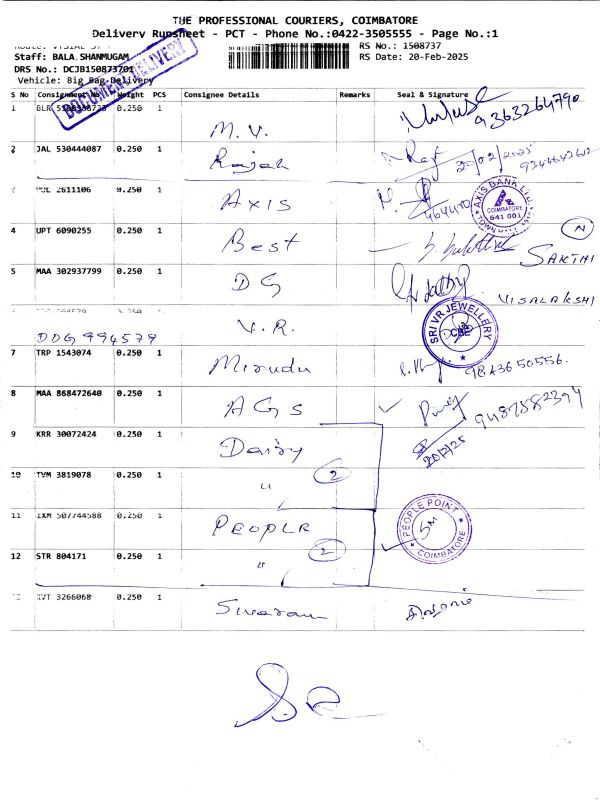 THE PROFESSIONAL COURIERS, COIMBATORE
Delivery Runsheet - PCT - Phone No.:0422-3505555 - Page No.:1
RS No.: 1508737
Staff: BALA SHANMUGAM RS Date: 20-Feb-2025
DRS No.: DCJB150873701
Vehicle: Big Bag Delivery
DOCUMENT DELIVERY
S No Consignment No Weight PCS Consignee Details Remarks Seal & Signature
1 0.250 1 M.V. 9363264790
2 JAL 530444087 0.250 1 Rajah 20/02/2025
2611106 0.250 1 Axis AXIS BANK LTD. COIMBATORE 641 001
4 UPT 6090255 0.250 1 Best SAKTHI N
5 MAA 302937799 0.250 1 DG VISALAKSHI
DDG 994579 V.R. SRI VR JEWELLERY CBE
7 TRP 1543074 0.250 1 Mirudu 9843650556.
8 MAA 868472640 0.250 1 AGS
9 KRR 30072424 0.250 1 Dairy 20/2/25
10 TVM 3819078 0.250 1 " 2
11 IXM 507744588 0.250 1 PEOPLE PEOPLE POINT COIMBATORE
12 STR 804171 0.250 1 " 2
KVT 3266068 0.250 1